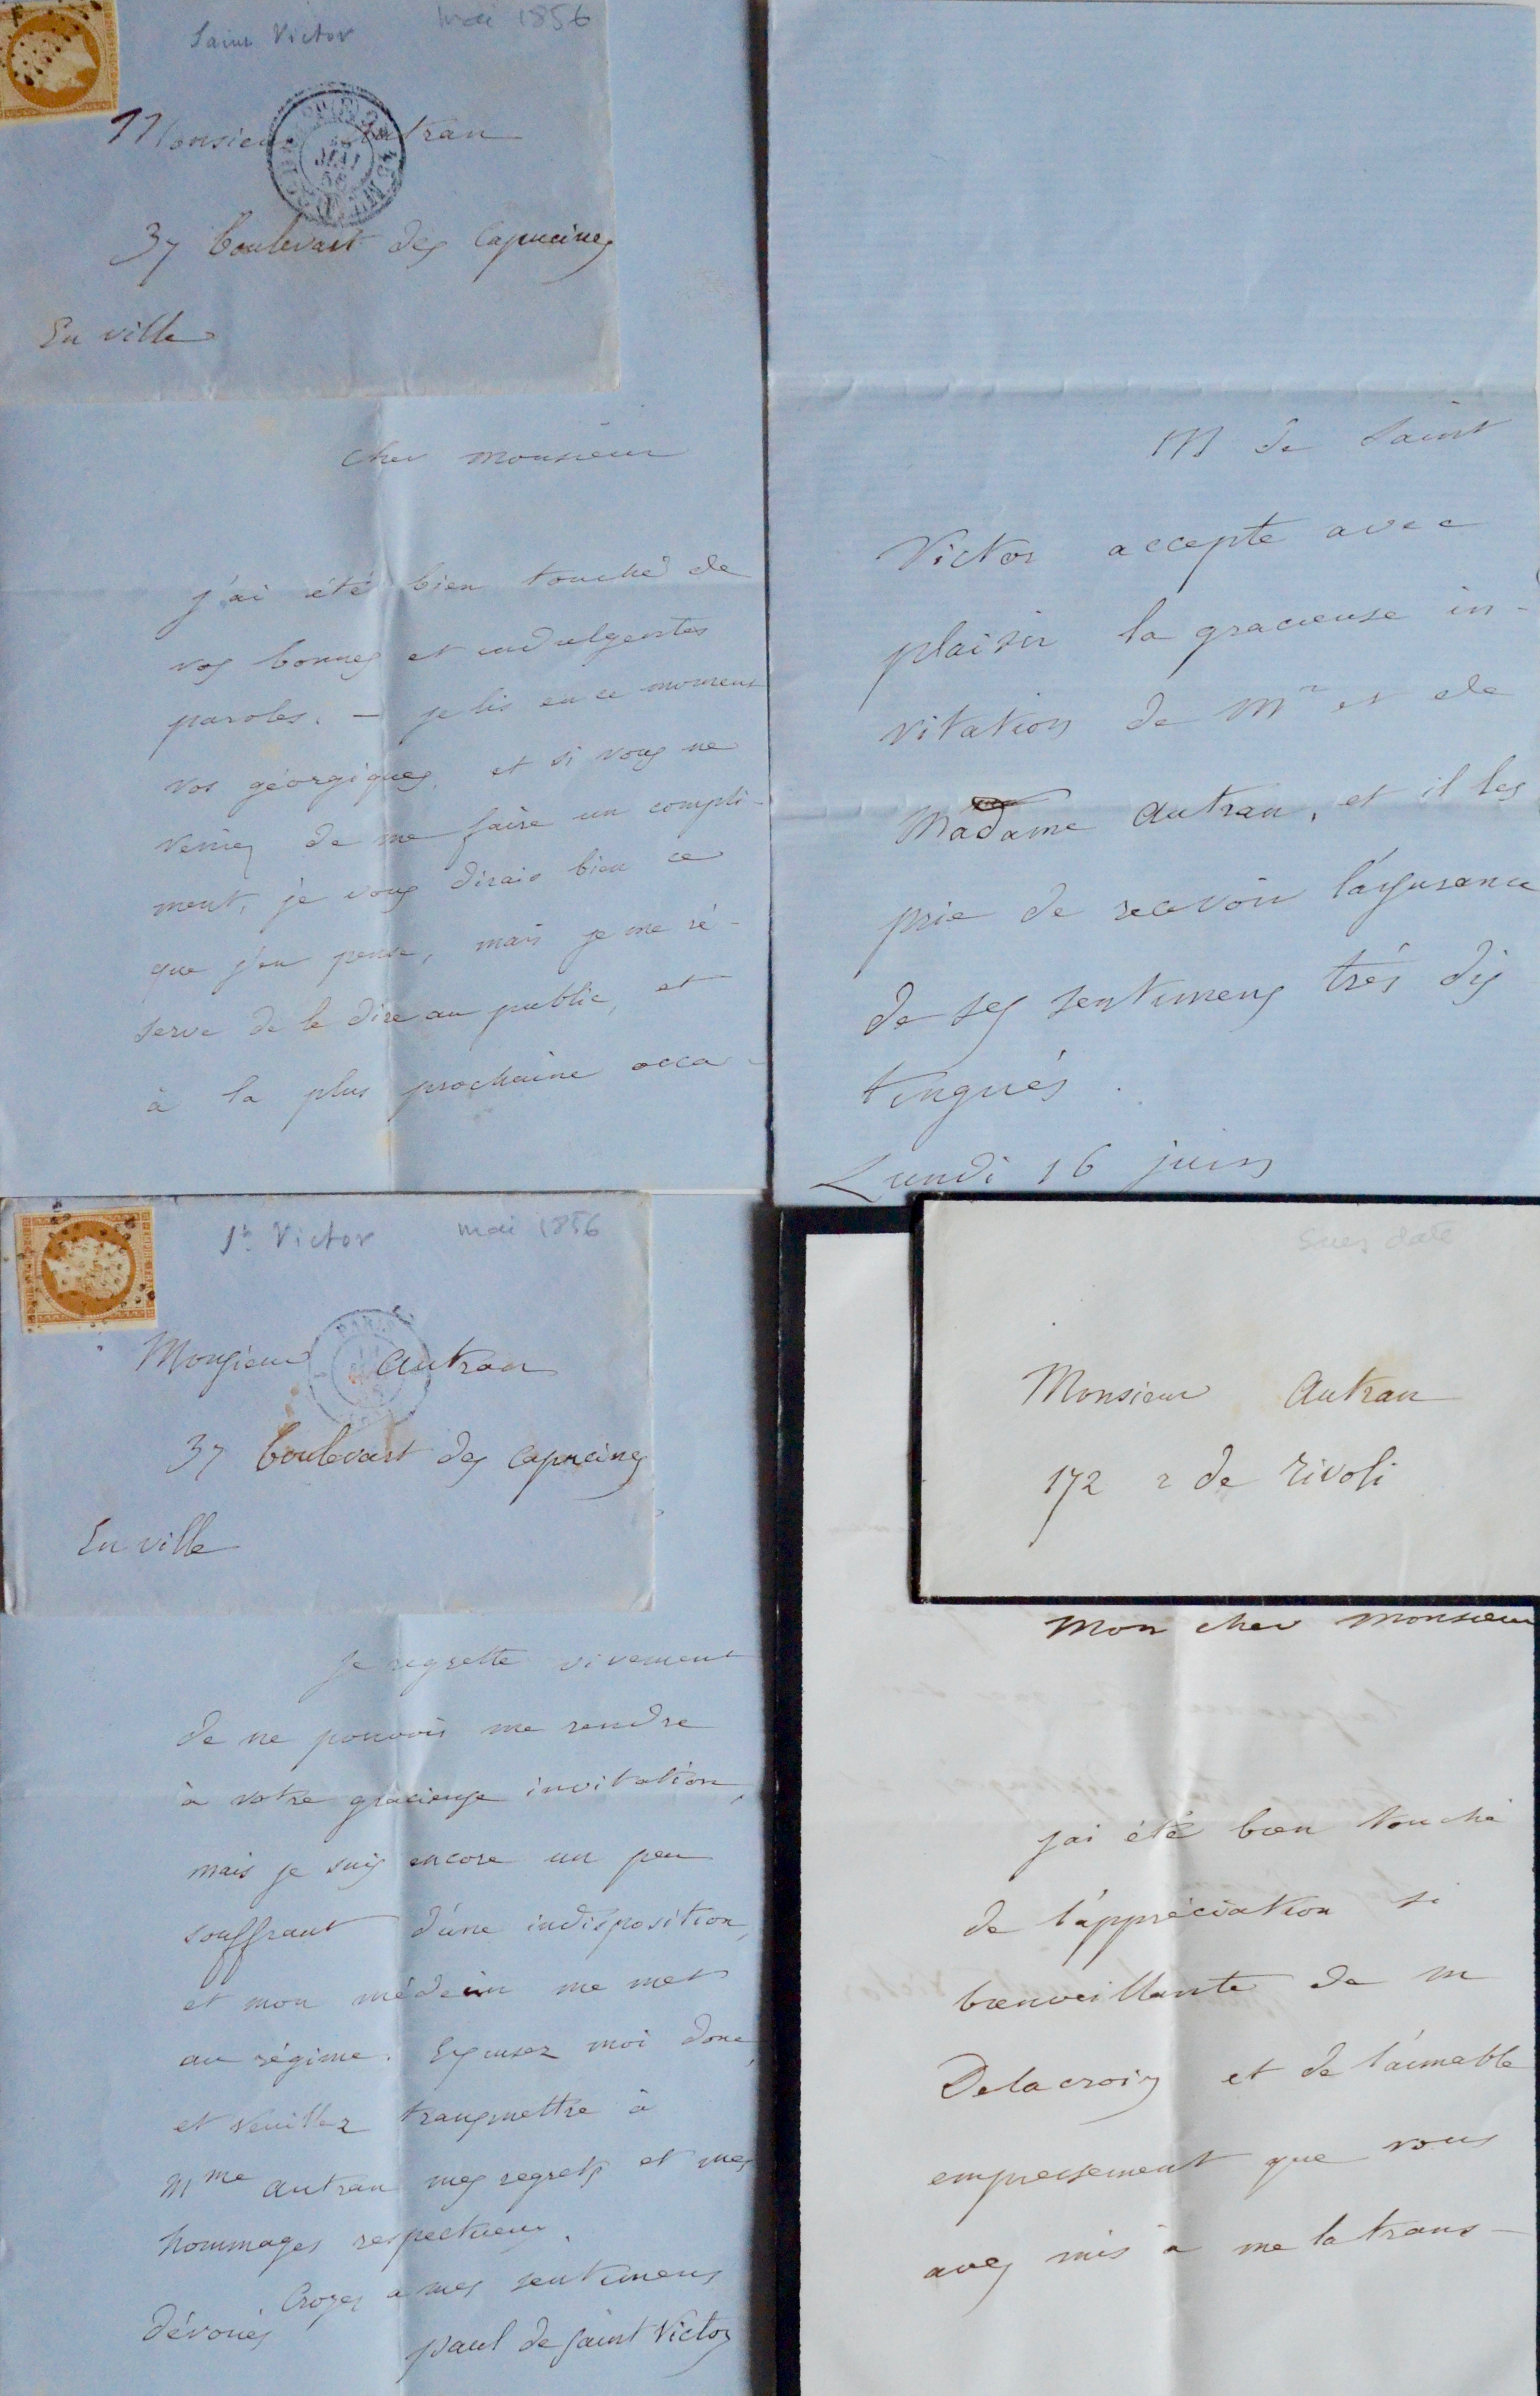 Saint Victor mai 1856
Monsieur Autran
37 boulevart des Capucines
En ville
Cher Monsieur
j'ai été bien touché de
vos bonnes et indulgentes
paroles. — je lis en ce moment
vos géorgiques, et si vous ne
veniez de me faire un compli-
ment, je vous dirais bien ce
que j'en pense, mais je me ré-
serve de le dire au public, et
à la plus prochaine occa-
M de Saint
Victor accepte avec
plaisir la gracieuse in-
vitation de Mr et de
Madame Autran, et il les
prie de recevoir l'assurance
de ses sentimens très dis
tingués.
Lundi 16 juin
St Victor mai 1856
PARIS
Monsieur Autran
37 boulevart des Capucines
En ville
Je regrette vivement
de ne pouvoir me rendre
à votre gracieuse invitation,
mais je suis encore un peu
souffrant d'une indisposition,
et mon médecin me met
au régime. Excusez moi donc,
et veuillez transmettre à
Mme Autran mes regrets et mes
hommages respectueux.
Croyez à mes sentimens
dévoués
Paul de Saint Victor
sans date
Monsieur Autran
172 r de Rivoli
Mon cher Monsieur
j'ai été bien touché
de l'appréciation si
bienveillante de M
Delacroix et de l'aimable
empressement que vous
avez mis à me la trans-